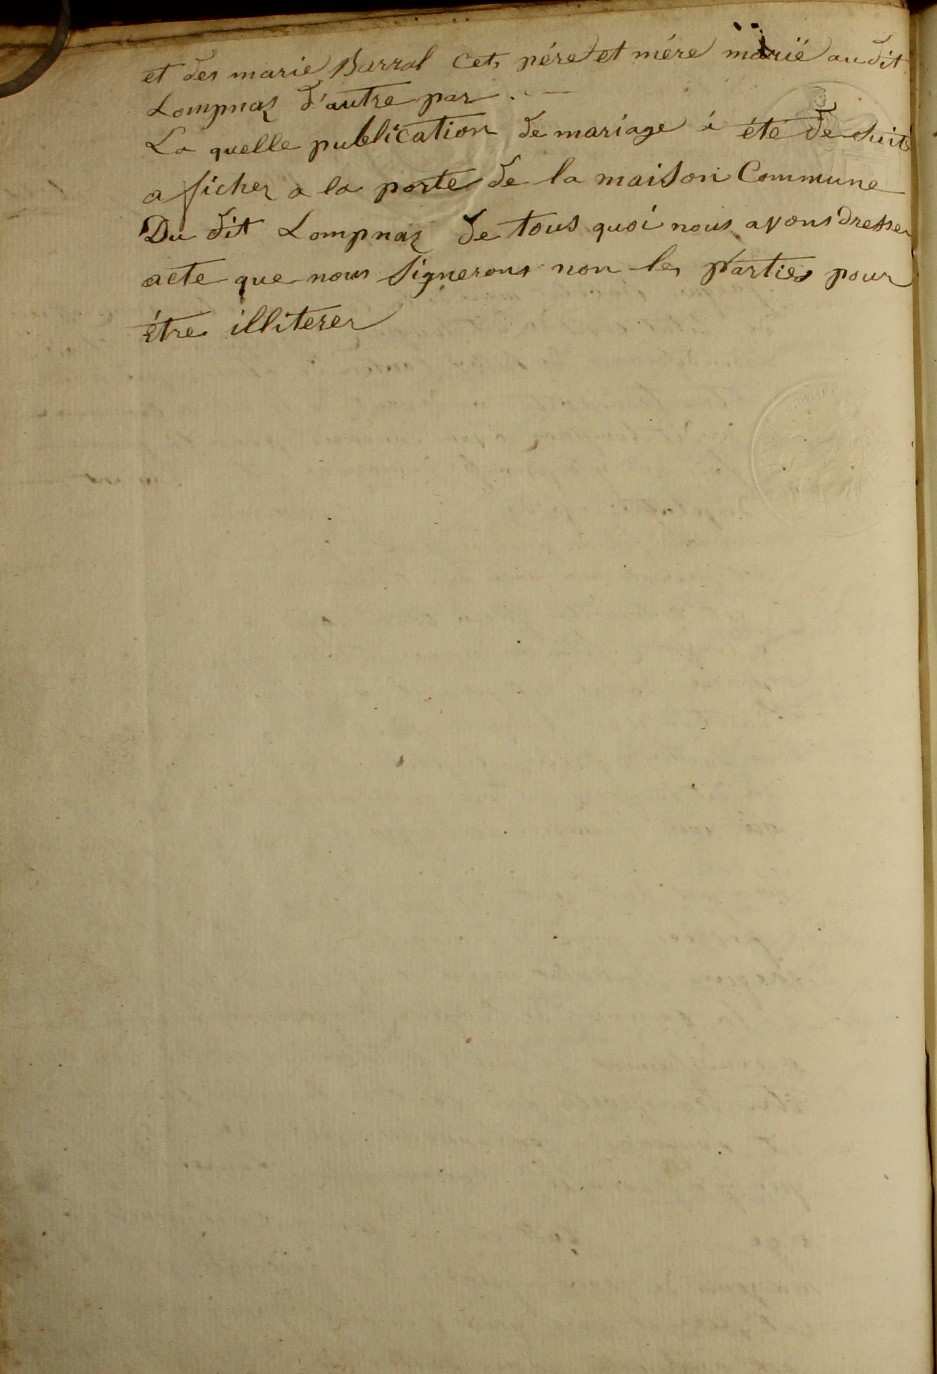 et des marie Barral Cets pére et mére marié au dit
Lompnaz d'autre par .
La quelle publication de mariage à été de suite
a ficher a la porte de la maison Commune
Du dit Lompnaz de tous quoi nous avons dresser
acte que nous Signerons non les parties pour
étre illiterer